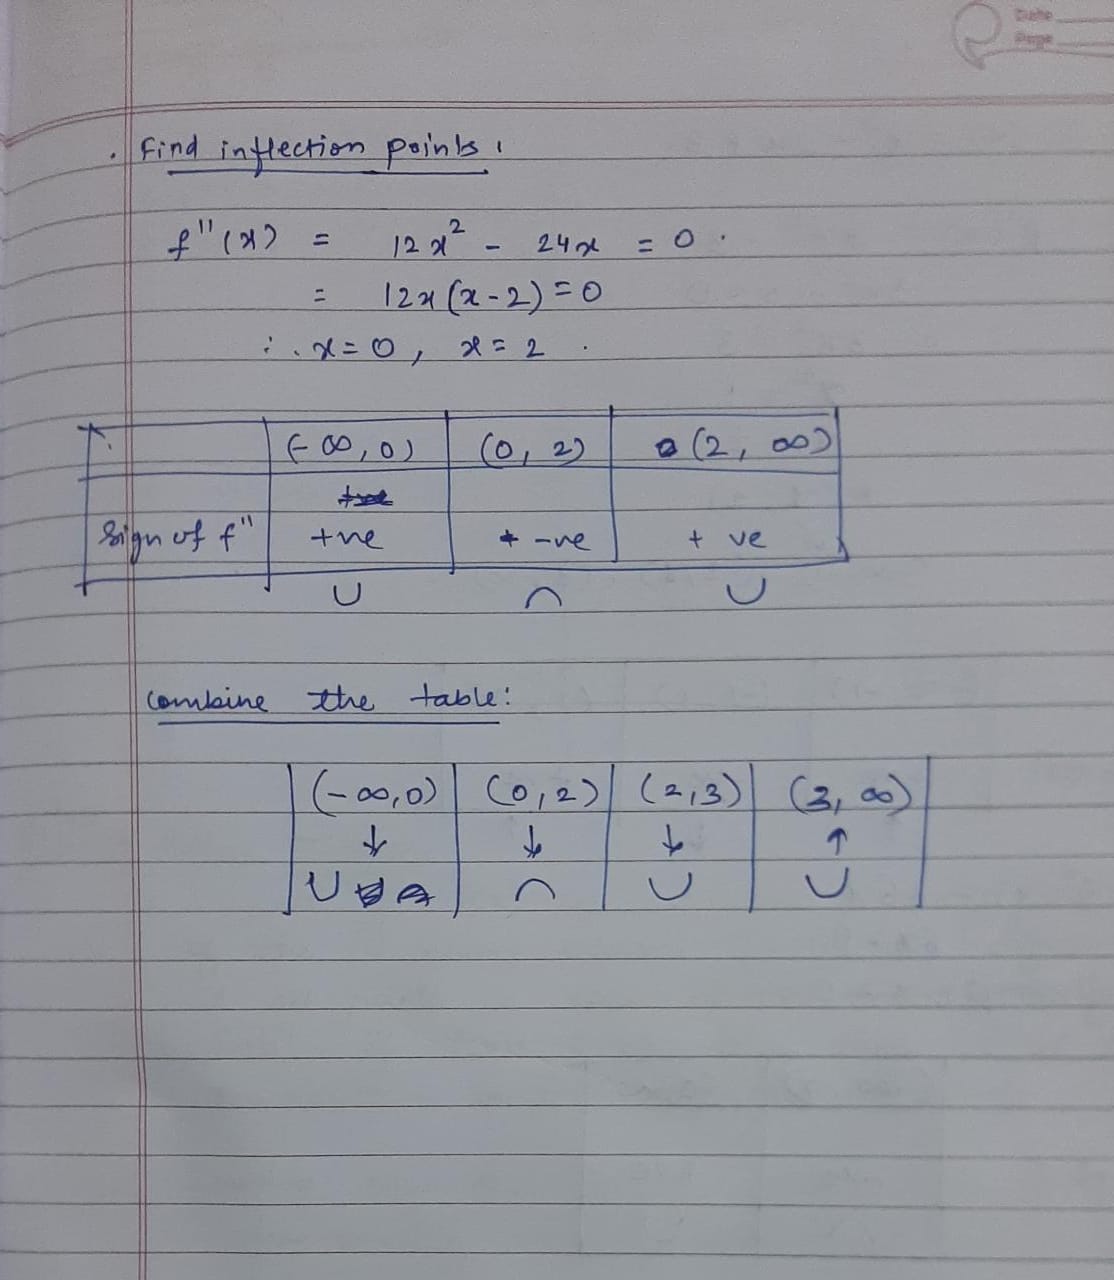 Date
Page
. Find inflection points :
f''(x) = 12x² - 24x = 0 .
= 12x(x-2) = 0
∴ x = 0 , x = 2 .
(-∞, 0) (0, 2) (2, ∞)
Sign of f'' +ve -ve + ve
∪ ∩ ∪
Combine the table:
(-∞,0) (0,2) (2,3) (3, ∞)
↓ ↓ ↓ ↑
∪ ∩ ∪ ∪